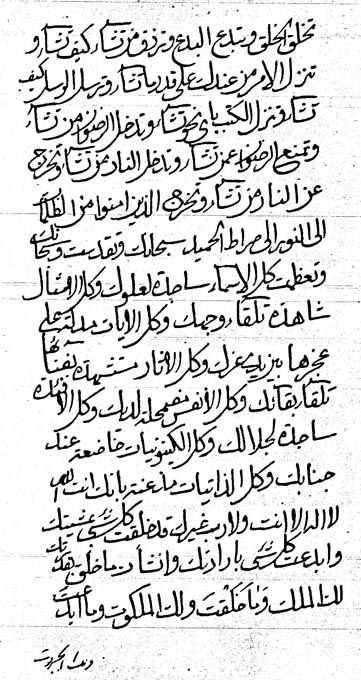 تخلق الخلق وتبدع البدع وترزق من تشآء كيف تشآء و
تنزل الامر من عندك على قدر ما تشآء وترسل الرسل كيف
تشآء وتنزل الكتب باى نحو تشآء وتدخل الرضوان من تشآء
وتمنع الرضوان عمن تشآء وتدخل النار من تشآء وتخرج
عن النار من تشآء وتخرج الذين امنوا من الظلمات
الى النور الى صراط الحميد سبحانك وتقدست وسبحانك
وتعظمت كل الاسمآء ساجدة لعلوك وكل الامثال
شاهدة تلقآء وجهك وكل الايات مدلة على
عجزها بين يدى عزك وكل الاثار مستشهدة بفنائها
تلقآء بقائك وكل الأنفس مضمحلة لديك وكل الافئدة
ساجدة لجلالك وكل الكينونيات خاضعة عند
جنابك وكل الذاتيات مذعنة ببابك انت الله
لا اله الا انت ولا رب غيرك قد خلقت كل شىء بمشيتك
وابدعت كل شىء بارادتك وانشأت ما خلق
لك الملك وما خلقت ولك الملكوت وما ابدعت
ولك الجبروت